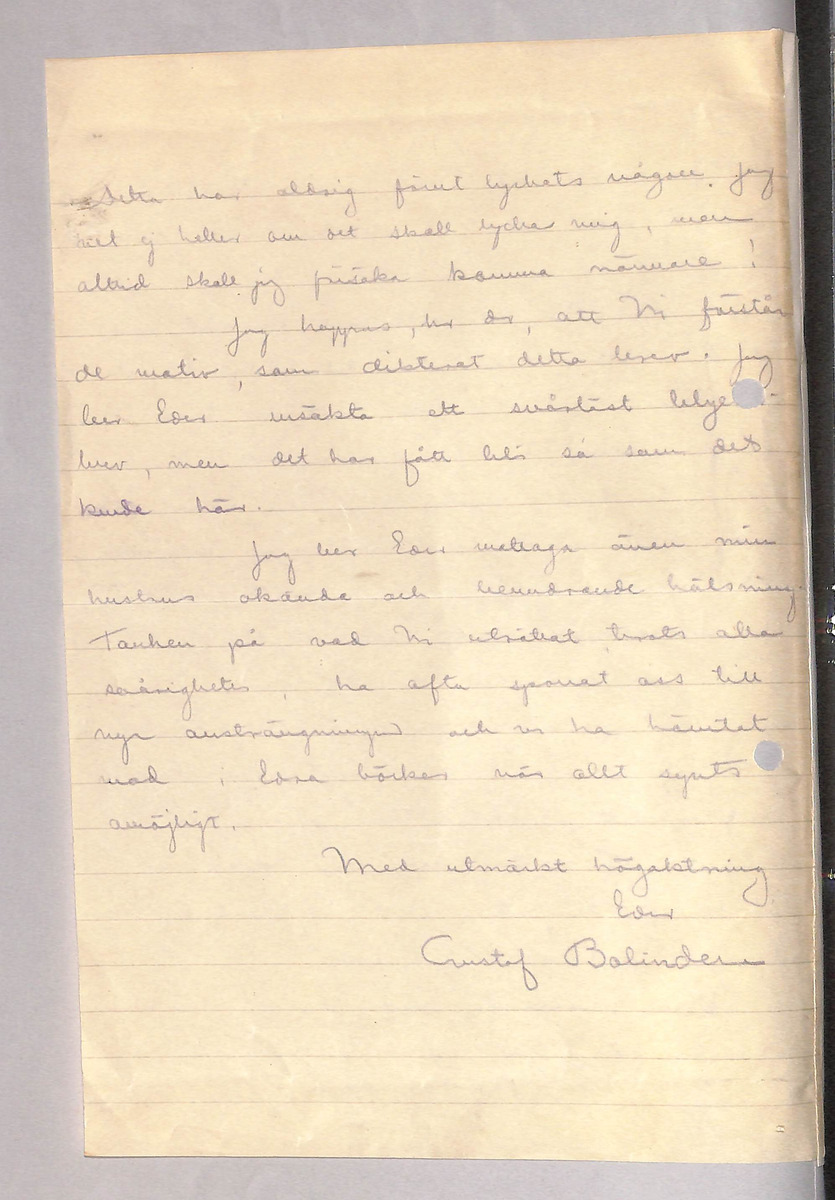 Detta har aldrig förut lyckats någon. Jag
vet ej heller om det skall lyckas mig, men
alltid skall jag försöka komma närmare!
Jag hoppas, hr dr, att Ni förstår
de motiv, som dikterat detta brev. Jag
ber Eder ursäkta ett svårläst
brev, men det har fått bli så som det
kunde här.
Jag ber Eder mottaga även min
hustrus okända och beundrande hälsning.
Tanken på vad Ni uträttat trots alla
svårigheter, ha ofta sporrat oss till
nya ansträngningar och vi ha hämtat
mod i Edra böcker när allt synts
omöjligt.
Med utmärkt högaktning
Eder
Gustaf Bolinder